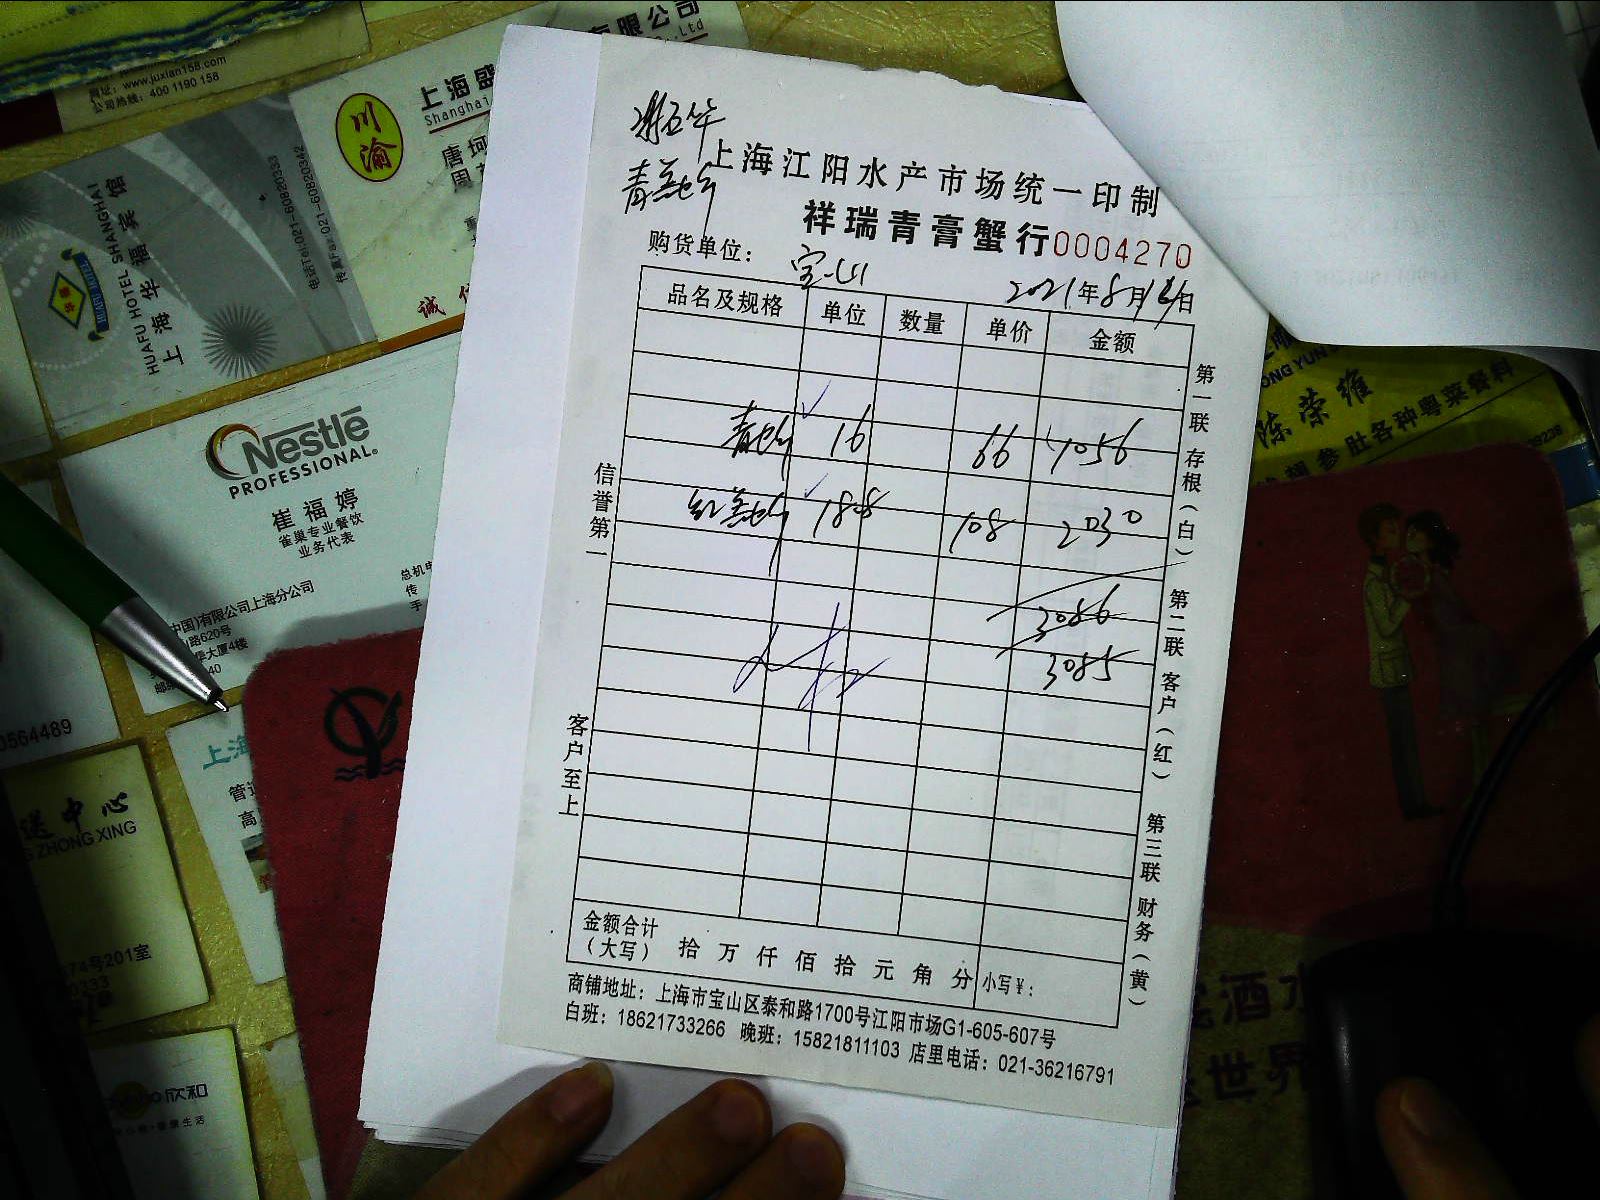 网址: www.juxian158.com
公司热线: 400 1190 158
川渝
上海盛
有限公司
Shanghai
Ltd
唐
周
诚
HUAFU HOTEL SHANGHAI
上海华福宾馆
电话Tel:021-60820333
传真Fax:021-60820342
Nestlē
PROFESSIONAL®
崔福婷
雀巢专业餐饮
业务代表
中国)有限公司上海分公司
山路620号
大厦4楼
总机
传
手
0564489
上海
送中心
ZHONG XING
74号201室
欣和
青膏蟹
上海江阳水产市场统一印制
祥瑞青膏蟹行0004270
购货单位: 宝山
2021年8月16日
品名及规格 单位 数量 单价 金额
青蟹 16 66 1056
红膏蟹 18.8 108 2030
3086
3085
信誉第一
客户至上
第一联 存根(白) 第二联 客户(红) 第三联 财务(黄)
金额合计
(大写) 拾 万 仟 佰 拾 元 角 分 小写¥:
商铺地址: 上海市宝山区泰和路1700号江阳市场G1-605-607号
白班: 18621733266 晚班: 15821811103 店里电话: 021-36216791
陈荣雍
参肚各种粤菜餐料
39238
酒水
世界